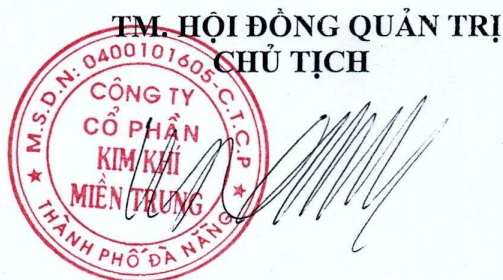 TM. HỘI ĐỒNG QUẢN TRỊ
CHỦ TỊCH
M.S.D.N: 0400101605-C.T.C.P
CÔNG TY
CỔ PHẦN
KIM KHÍ
MIỀN TRUNG
THÀNH PHỐ ĐÀ NẴNG